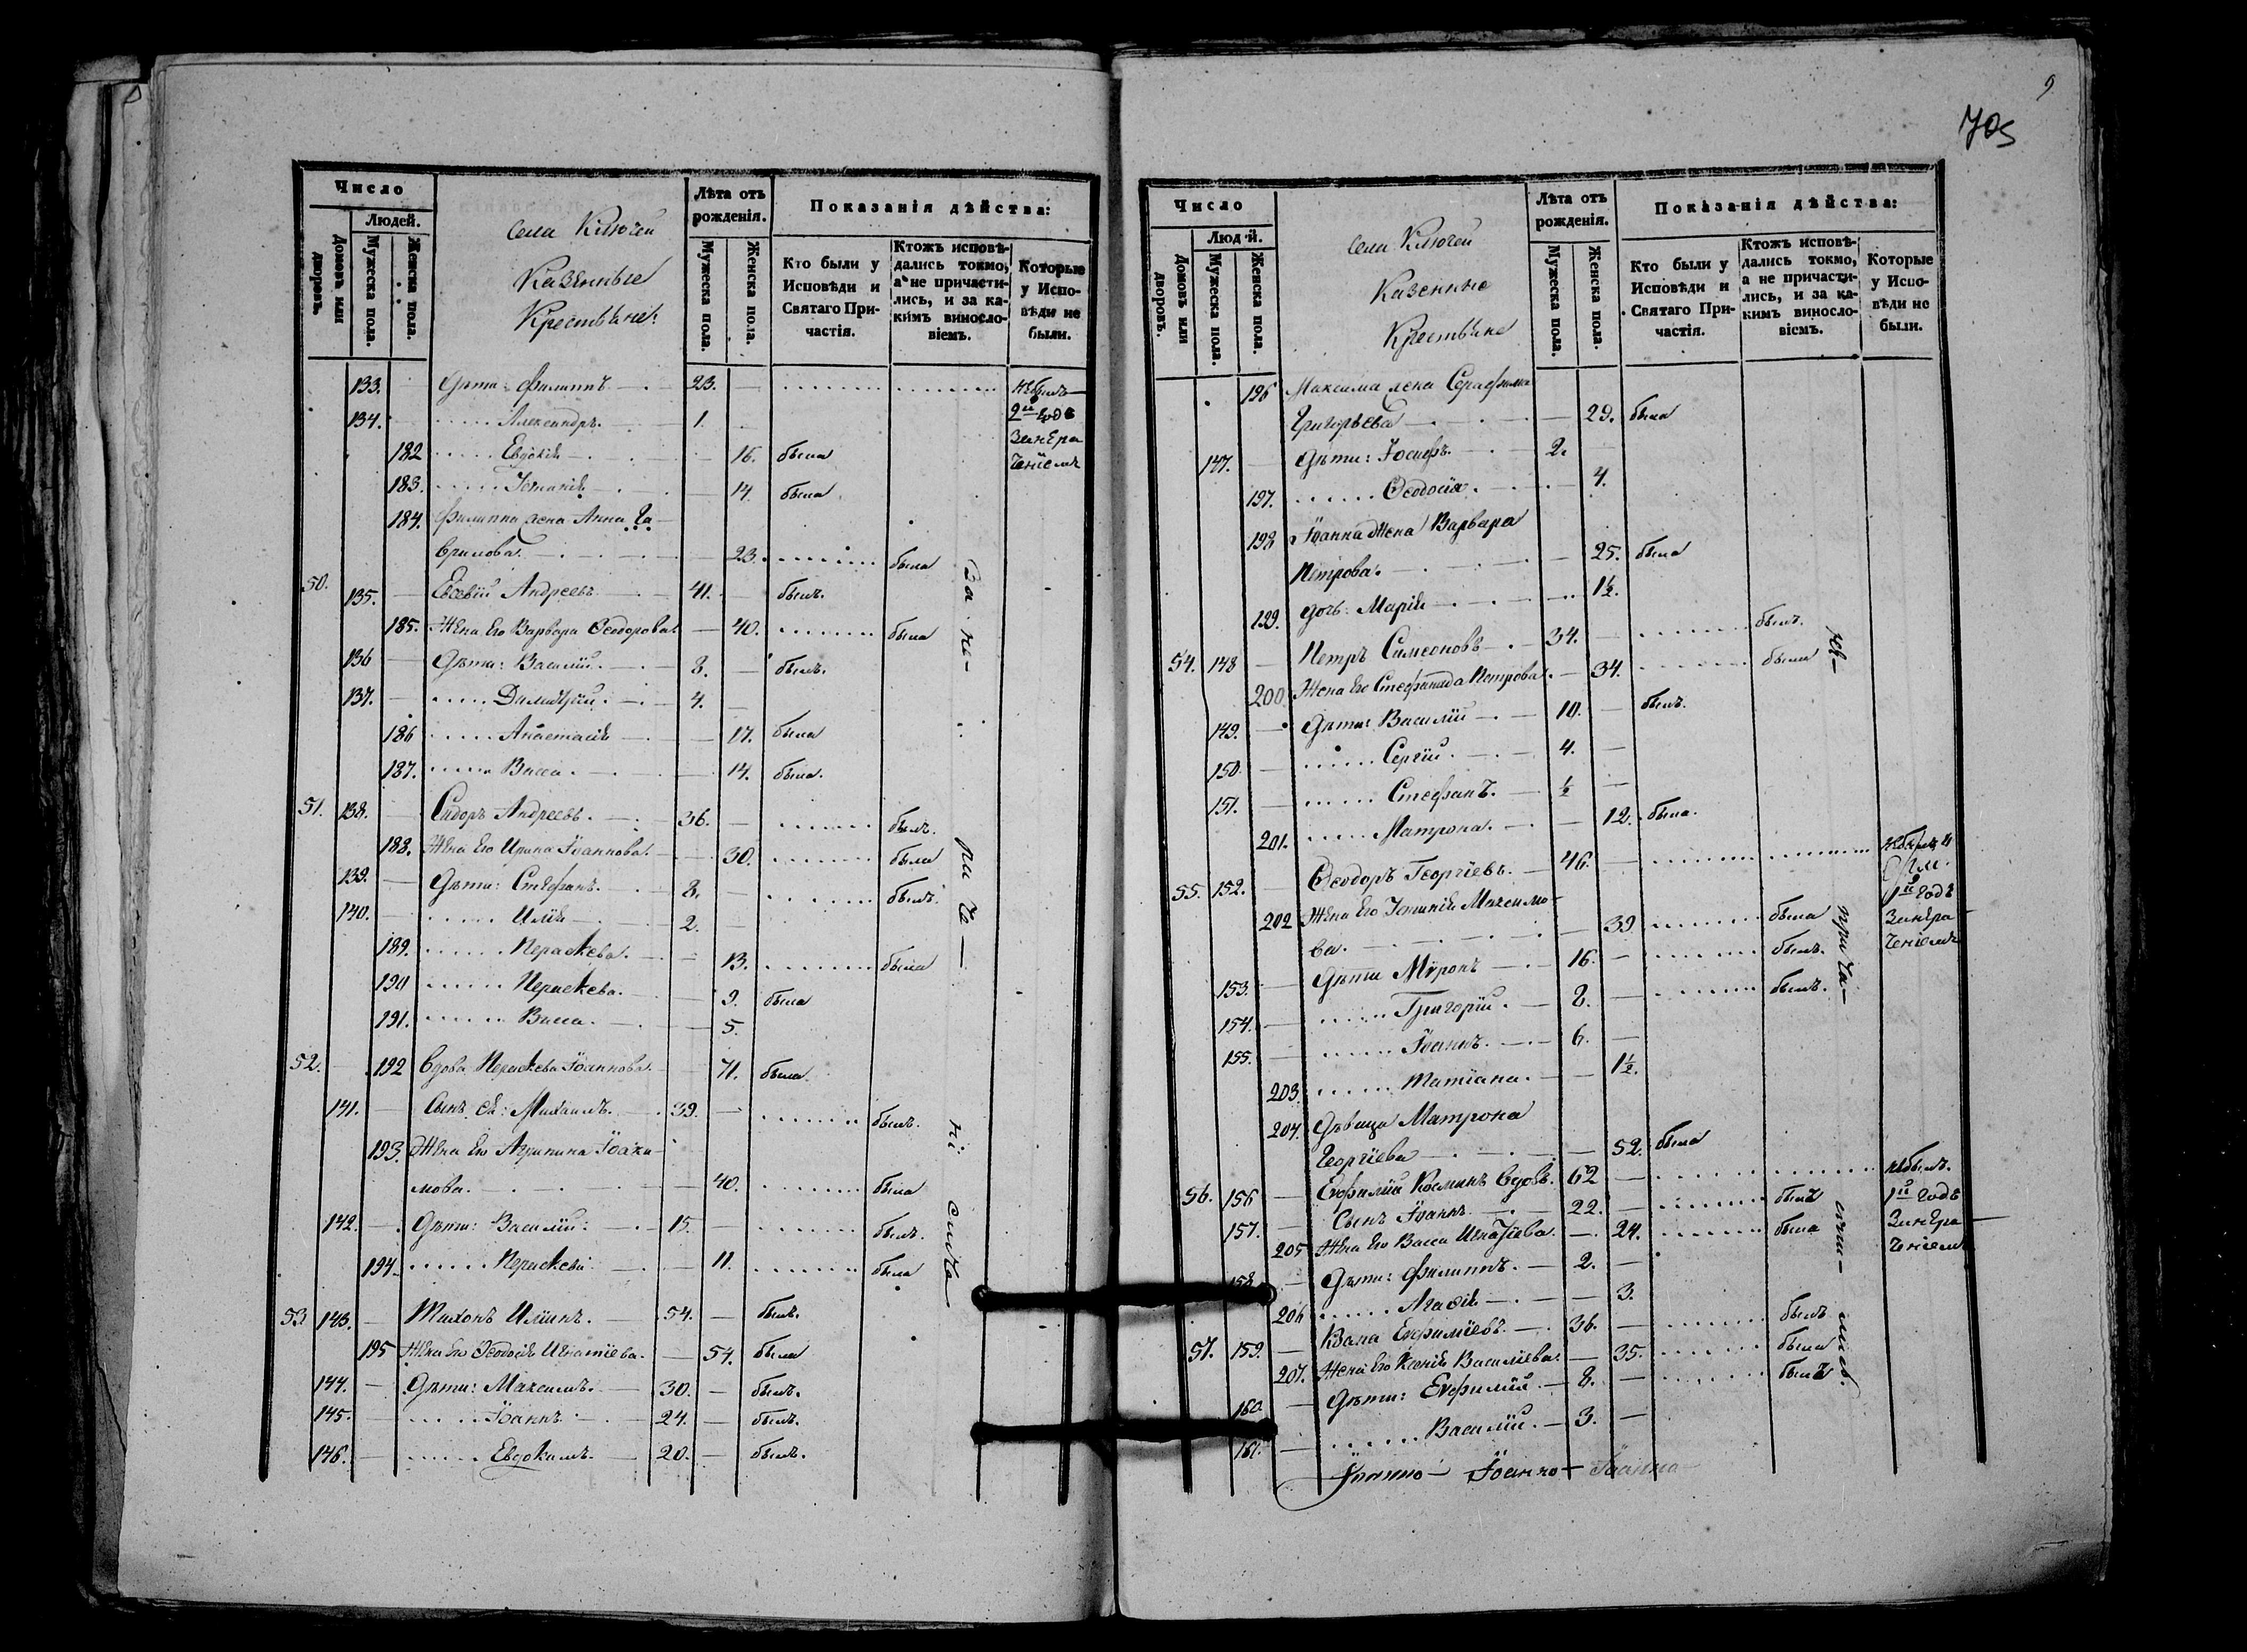 9
705
Число
Людей.
Домовъ или дворовъ.
Мужеска пола.
Женска пола.
Села Ключей
Казенные
Крестьяне:
Лѣта отъ рожденія.
Мужеска пола.
Женска пола.
Показанія дѣйства:
Кто были у Исповѣди и Святаго Причастія.
Ктожъ исповѣдались токмо, а не причастились, и за какимъ винословіемъ.
Которые у Исповѣди не были.
133. — Дѣти: Филиппъ — 23. — не былъ
134. Александръ. 1. 2й годъ
182 Евдокія — 16. была
183. 14 была
184. Филиппа жена Анна Га-
врилова. — 23. была
50. 135. — Евсевій Андреевъ — 41. — былъ.
185. Жена Его Варвара Ѳеодорова. — 40. была
136 — Дѣти: Василій. — 8. — былъ.
137. — Димитрій. — 4. —
186 Анастасія — 17. была
187. Васса. — 14. была.
51. 138. — Сидоръ Андреевъ. — 36. — былъ.
188. Жена Его Ирина Іоаннова. — 30. была
139. — Дѣти: Стефанъ. — 8. — былъ.
140. — Илія — 2. —
189. Параскева. — 13. была
190 Параскева. — 9. была
191. Васса. — 5.
52. 192 Вдова Параскева Іоаннова. 71. была
141. — Сынъ ея: Михаилъ. — 39. — былъ.
193. Жена Его Агрипина Іоаки-
мова. — 40. была
142. — Дѣти: Василій: — 15. — былъ.
194. Параскева — 11. была
53 143. — Тихонъ Илiинъ. — 54. — былъ.
195 Жена Его Ѳеодосія Игнатіева. — 54. была
144. — Дѣти: Максимъ. — 30. — былъ.
145. — Іоаннъ — 24. — былъ.
146. — Евдокимъ. — 20. — былъ.
Число
Людей.
Домовъ или дворовъ.
Мужеска пола.
Женска пола.
Села Ключей
Казенные
Крестьяне
Лѣта отъ рожденія.
Мужеска пола.
Женска пола.
Показанія дѣйства:
Кто были у Исповѣди и Святаго Причастія.
Ктожъ исповѣдались токмо, а не причастились, и за какимъ винословіемъ.
Которые у Исповѣди не были.
196 Максима жена Серафима
Григорьева — 29. была
147. — Дѣти: Іосифъ. — 2. —
197. Ѳеодосія. — 4.
198 Іоанна Жена Варвара
Петрова. — 25. была
199. дочь: Марія — 1½.
54. 148 — Петръ Симеоновъ — 34. — былъ.
200 Жена Его Стефанида Петрова. — 34. была
149. — Дѣти: Василій — 10. — былъ.
150 — Сергій. — 4. —
151. — Стефанъ. — ½ —
201. Матрона. — 12. была.
55. 152. — Ѳеодоръ Георгіевъ. — 46. —
1й годъ
202 Жена Его Максимо-
ва. — 39 была
153. — Дѣти Мѵронъ — 16. — былъ.
154. — Григорій. — 8. — былъ.
155. — Іоаннъ. — 6. —
203. Татіана. — 1½.
204. Дѣвица Матрона
Георгіева — 52. была
56. 156 — Косминъ Вдовъ. 62 — не былъ.
1й годъ
157. — Сынъ Іоаннъ — 22. — былъ
205 Жена Его Васса Игнатіева. — 24. была
158 — Дѣти: Филиппъ. — 2. —
206 — 3.
57. 159. — 36. — былъ
207. Жена Его Ксенія Василіева. — 35. была
160. — Дѣти: Евфимій — 8. — былъ
161. — Василій. — 3. —
Іоанно Іоанно Іоанна